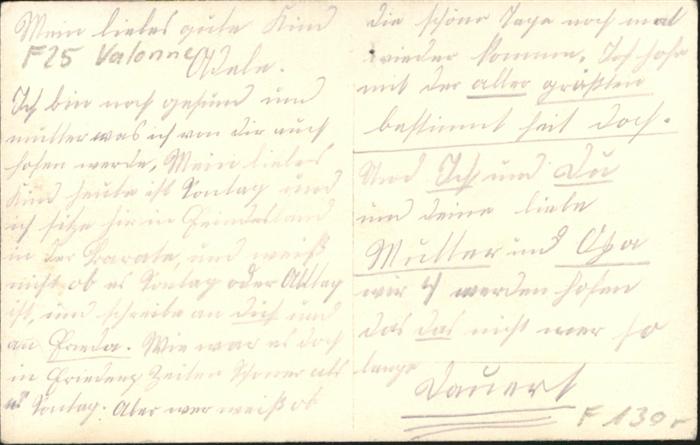 Mein liebes gute Kind
F25 Valonne Adele.
Ich bin noch gesund und
mutter was ich von dir auch
hofen werde, Mein liebes
Kind heute ist Sontag und
ich sitze hir in Feindesland
in der Barake, und weiß
nicht ob es Sontag oder Alltag
ist, und schreibe an dich und
an Frieda. Wie war es doch
in Friedenz Zeiten Schoner als
es Sontag. Aber wer weiß ob
die schöne Tage noch mal
wieder komme. Ich hofe
mit der aller größten
bestimmt heit doch.
Und Ich und Du
und deine liebe
Mutter und Opa
wir 4 werden hofen
das das nicht mer so
lange
Dauert
F 130,-